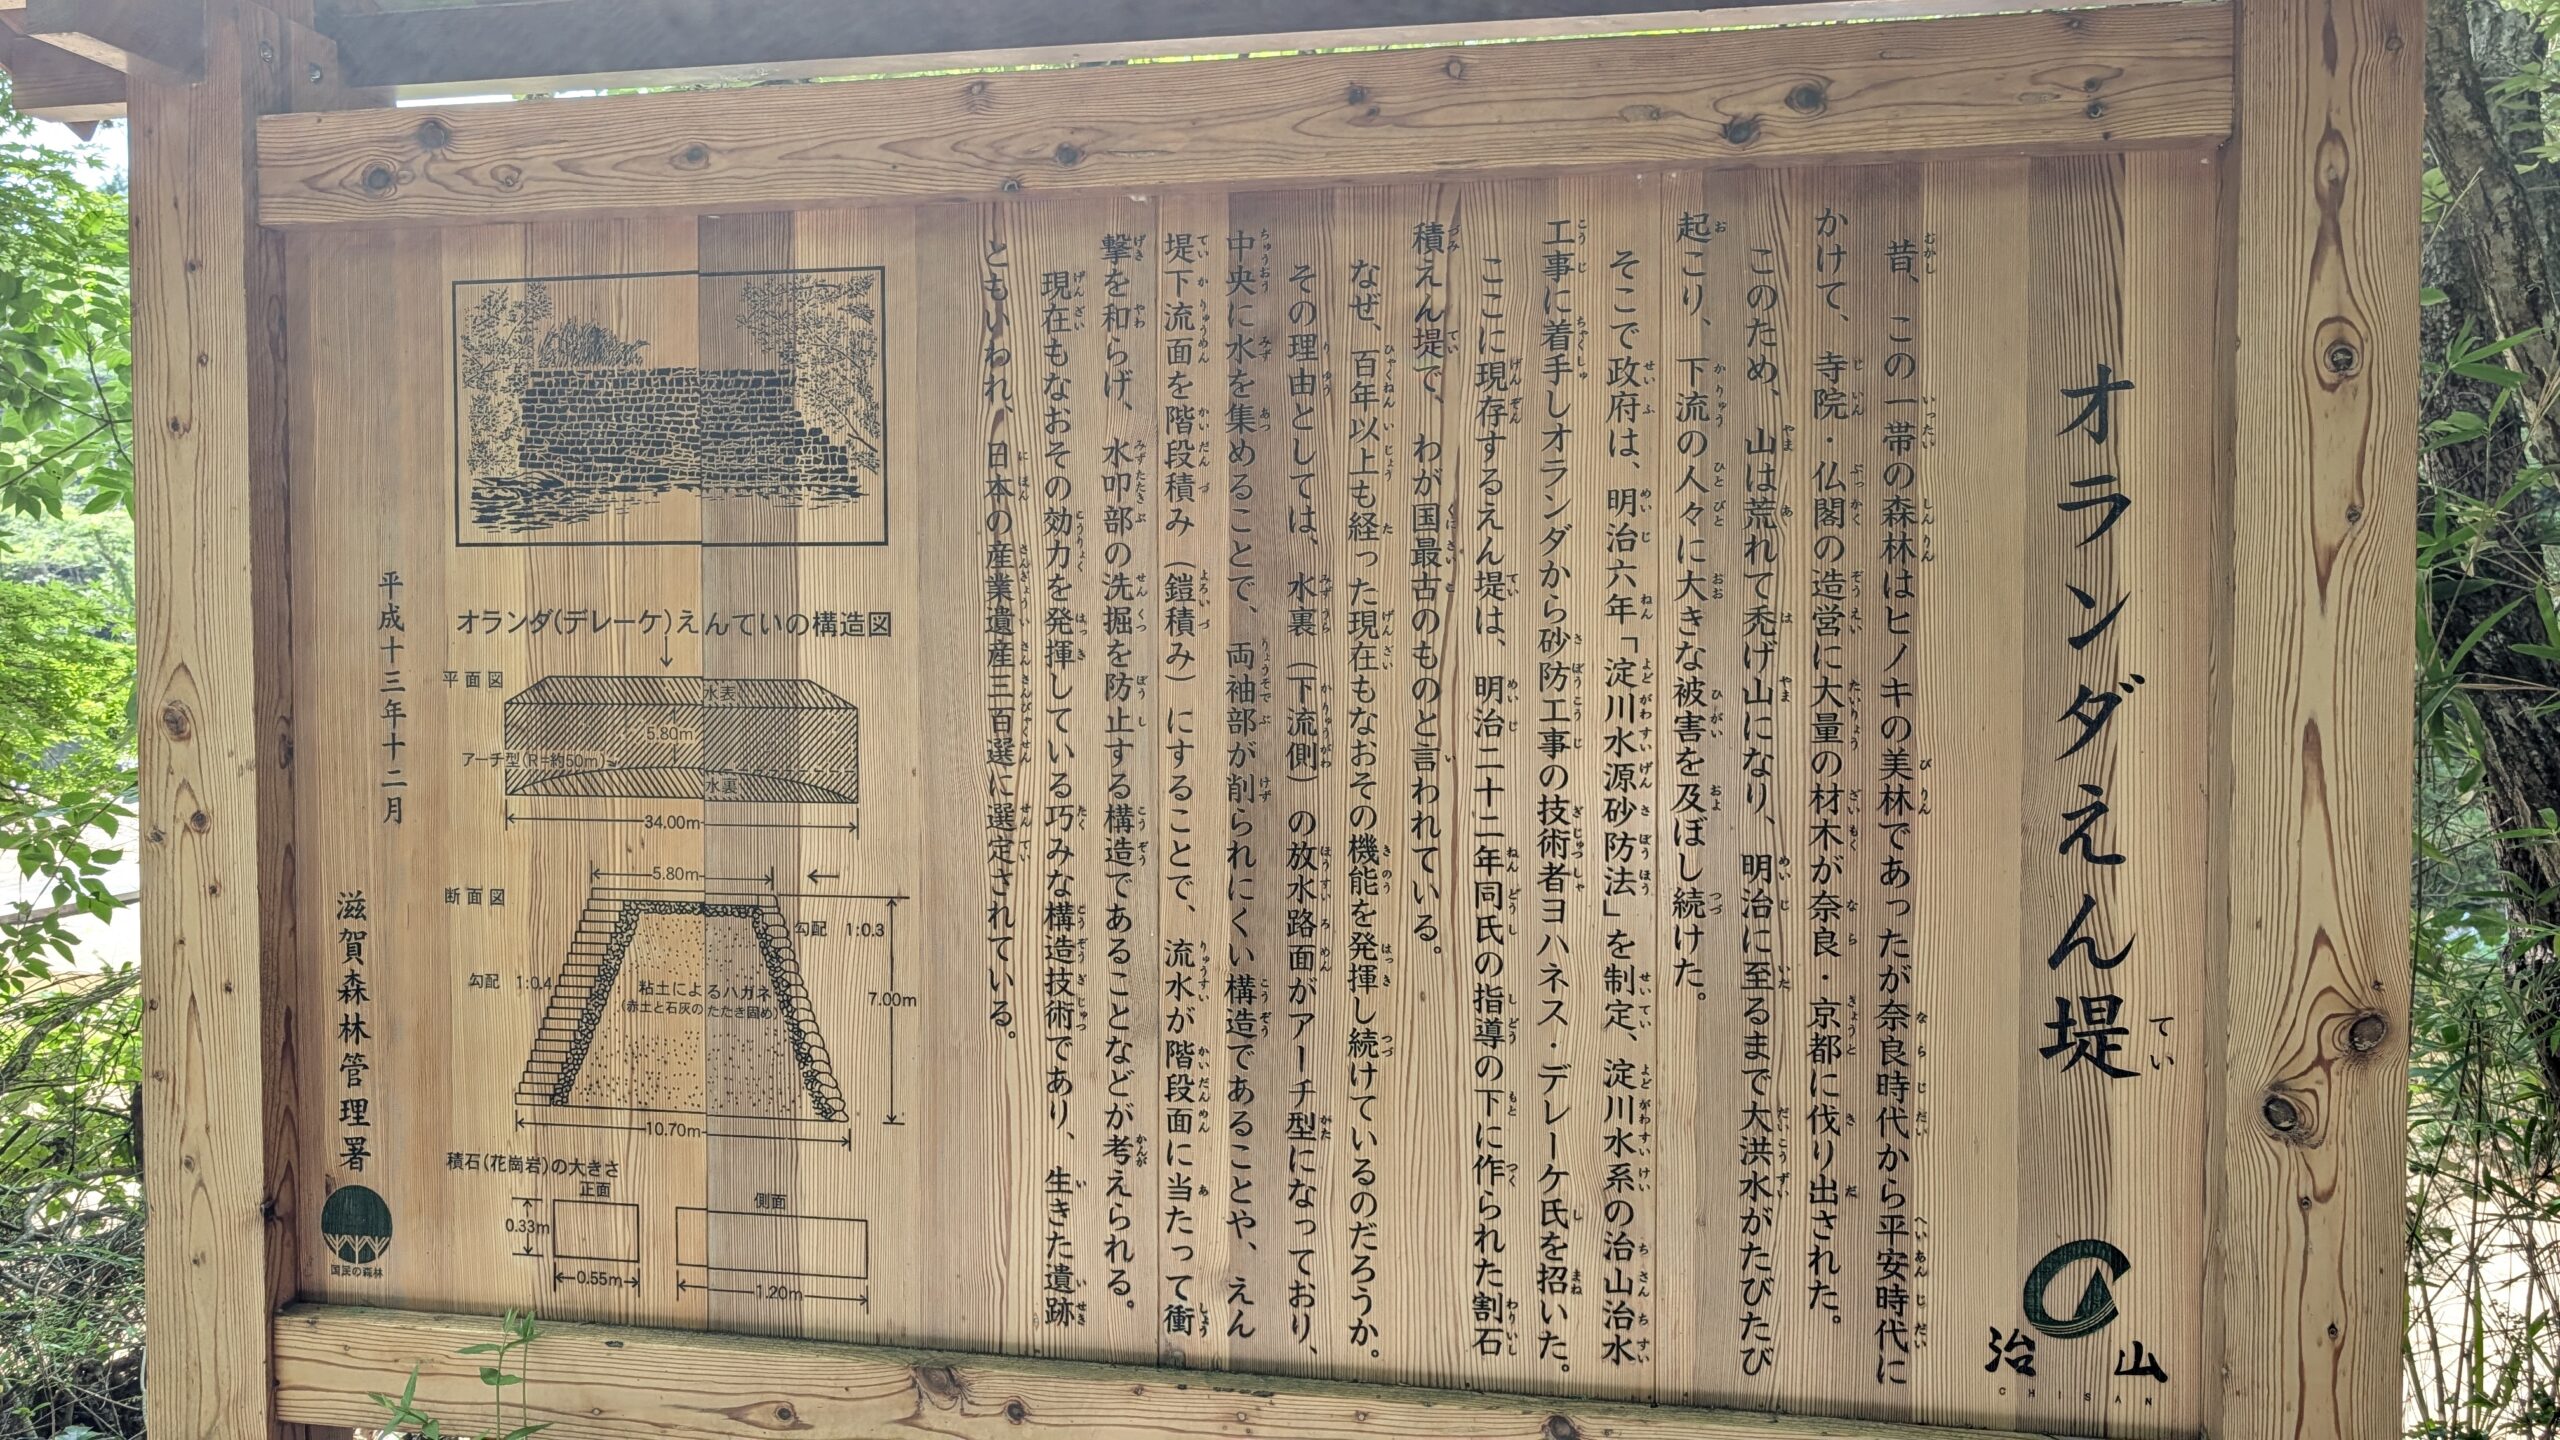 オランダえん堤
てい
治山
CHISAN
昔、この一帯の森林はヒノキの美林であったが奈良時代から平安時代に
かけて、寺院・仏閣の造営に大量の材木が奈良・京都に伐り出された。
このため、山は荒れて禿げ山になり、明治に至るまで大洪水がたびたび
起こり、下流の人々に大きな被害を及ぼし続けた。
そこで政府は、明治六年「淀川水源砂防法」を制定、淀川水系の治山治水
工事に着手しオランダから砂防工事の技術者ヨハネス・デレーケ氏を招いた。
ここに現存するえん堤は、明治二十二年同氏の指導の下に作られた割石
積えん堤で、わが国最古のものと言われている。
なぜ、百年以上も経った現在もなおその機能を発揮し続けているのだろうか。
その理由としては、水裏（下流側）の放水路面がアーチ型になっており、
中央に水を集めることで、両袖部が削られにくい構造であることや、えん
堤下流面を階段積み（鎧積み）にすることで、流水が階段面に当たって衝
撃を和らげ、水叩部の洗掘を防止する構造であることなどが考えられる。
現在もなおその効力を発揮している巧みな構造技術であり、生きた遺跡
ともいわれ、日本の産業遺産三百選に選定されている。
オランダ(デレーケ)えんていの構造図
平面図
水表
5.80m
アーチ型(R=約50m)
水裏
34.00m
断面図
5.80m
勾配 1:0.3
勾配 1:0.4
粘土によるハガネ
(赤土と石灰のたたき固め)
7.00m
10.70m
積石(花崗岩)の大きさ
正面
側面
0.33m
0.55m
1.20m
平成十三年十二月
滋賀森林管理署
国民の森林